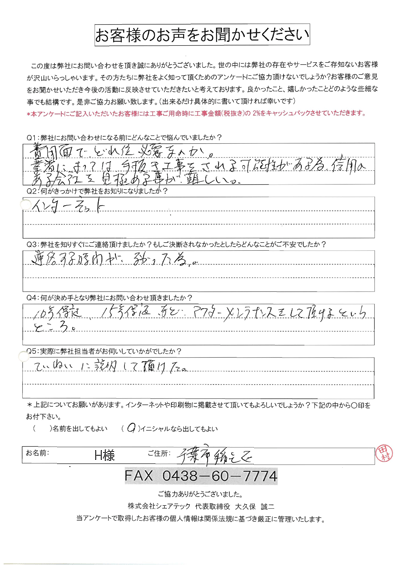 お客様のお声をお聞かせください
この度は弊社にお問い合わせを頂き誠にありがとうございました。世の中には弊社の存在やサービスをご存知ないお客様
が沢山いらっしゃいます。その方たちに弊社をよく知って頂くためのアンケートにご協力頂けないでしょうか?お客様のご意見
をお聞かせいただき今後の活動に反映させていただきたいと考えております。良かったこと、嬉しかったことどのような些細な
事でも結構です。是非ご協力お願い致します。(出来るだけ具体的に書いて頂ければ幸いです)
*本アンケートにご記入いただいたお客様には工事ご用命時に工事金額(税抜き)の2%をキャッシュバックさせていただきます。
Q1:弊社にお問い合わせになる前にどんなことで悩んでいましたか?
費用面でどれ位必要なんか。
業者によっては手抜き工事をされる可能性がある為、信用の
ある会社を見極める事が難しい。
Q2:何がきっかけで弊社をお知りになりましたか?
インターネット
Q3:弊社を知りすぐにご連絡頂けましたか?もしご決断されなかったとしたらどんなことがご不安でしたか?
連絡する時間が
った為。
Q4:何が決め手となり弊社にお問い合わせ頂きましたか?
10年保証、15年保証など、アフターメンテナンスをして頂けるという
ところ。
Q5:実際に弊社担当者がお伺いしていかがでしたか?
ていねいに説明して頂けた。
*上記についてお願いがあります。インターネットや印刷物に掲載させて頂いてもよろしいでしょうか?下記の中から〇印を
お付下さい。
( )名前を出してもよい (〇)イニシャルなら出してもよい
お名前: H様 ご住所: 千葉市稲毛区
FAX 0438-60-7774
ご協力ありがとうございました。
株式会社シェアテック 代表取締役 大久保 誠二
当アンケートで取得したお客様の個人情報は関係法規に基づき厳正に管理いたします。